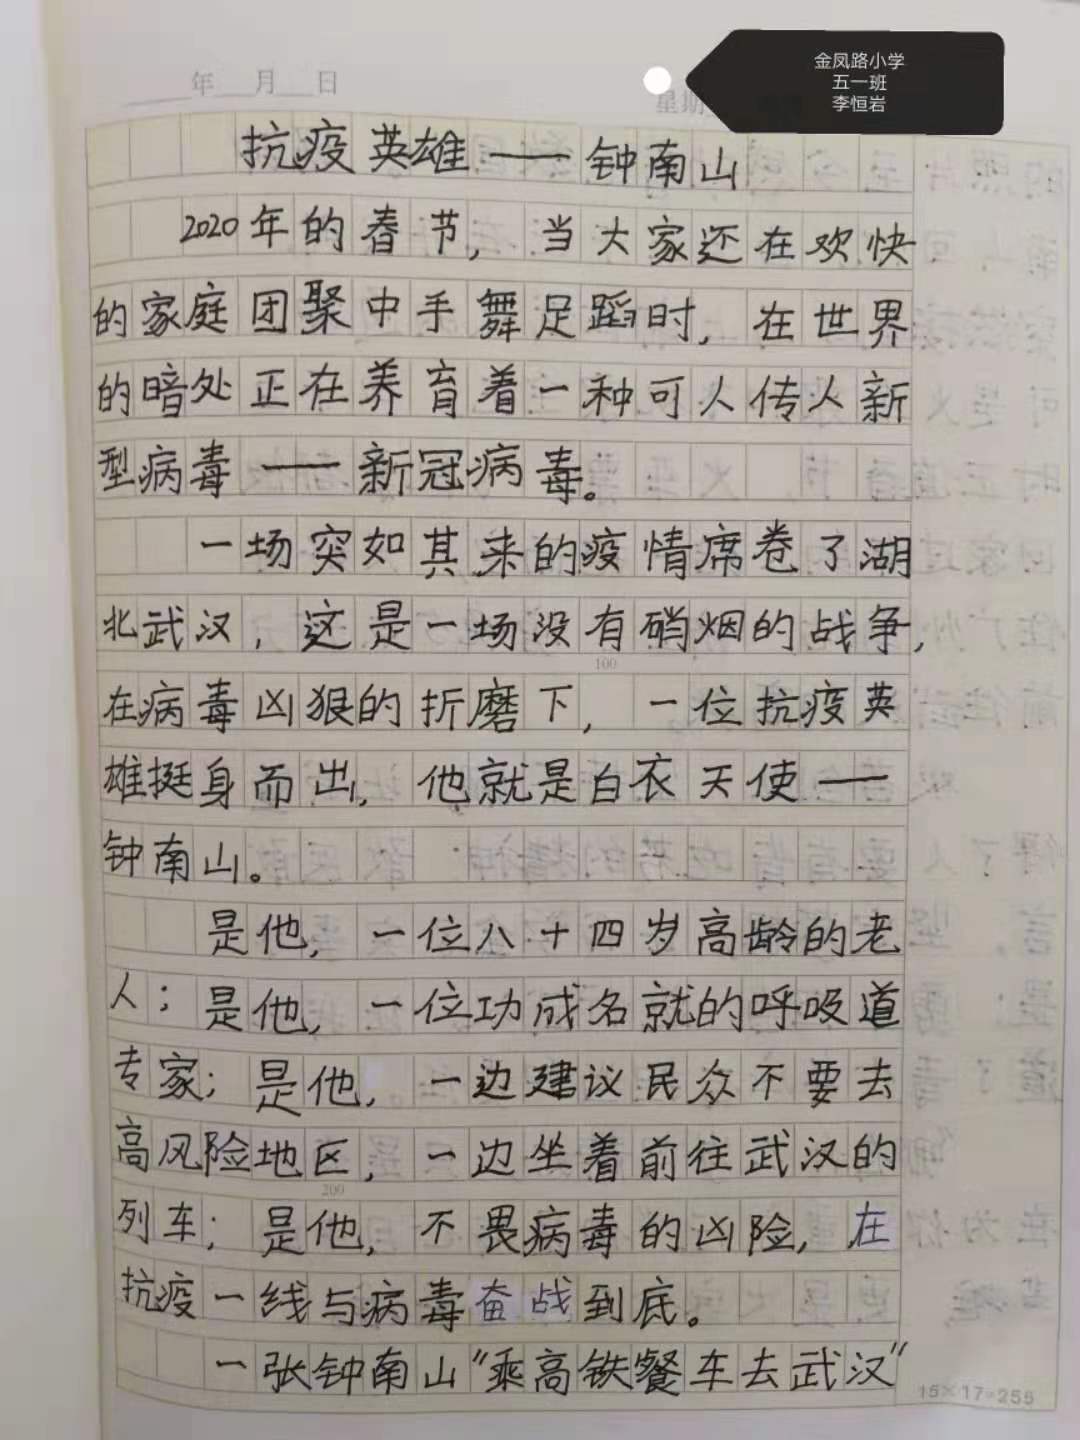 金凤路小学
五一班
李恒岩
年 月 日
星期
抗疫英雄——钟南山
2020年的春节，当大家还在欢快
的家庭团聚中手舞足蹈时，在世界
的暗处正在养育着一种可人传人新
型病毒——新冠病毒。
一场突如其来的疫情席卷了湖
北武汉，这是一场没有硝烟的战争，
100
在病毒凶狠的折磨下，一位抗疫英
雄挺身而出，他就是白衣天使——
钟南山。
是他，一位八十四岁高龄的老
人；是他，一位功成名就的呼吸道
专家；是他，一边建议民众不要去
高风险地区，一边坐着前往武汉的
200
列车；是他，不畏病毒的凶险，在
抗疫一线与病毒奋战到底。
一张钟南山“乘高铁餐车去武汉”
15×17=255